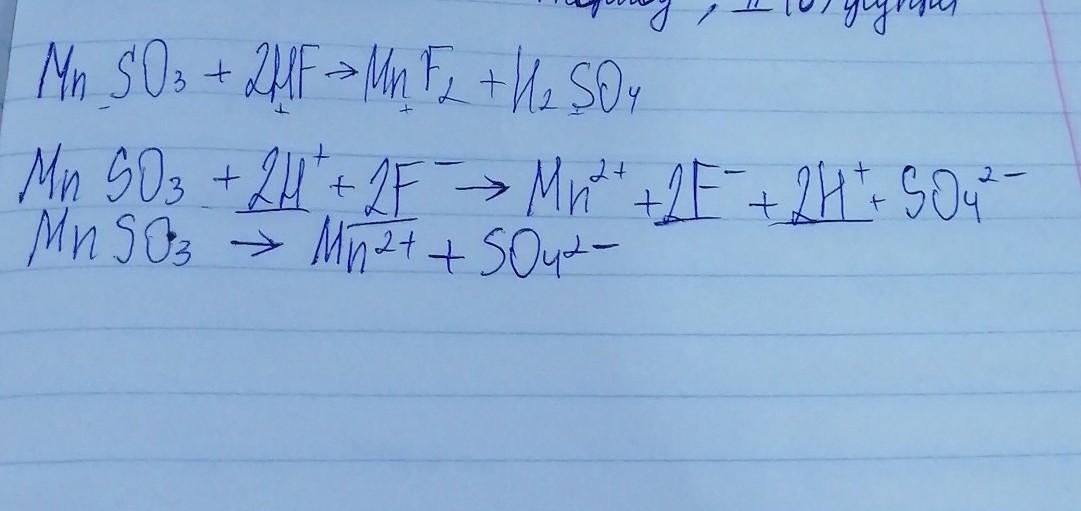 , II (B) группа
MnSO₃ + 2HF → MnF₂ + H₂SO₄
MnSO₃ + 2H⁺ + 2F⁻ → Mn²⁺ + 2F⁻ + 2H⁺ + SO₄²⁻
MnSO₃ → Mn²⁺ + SO₄²⁻